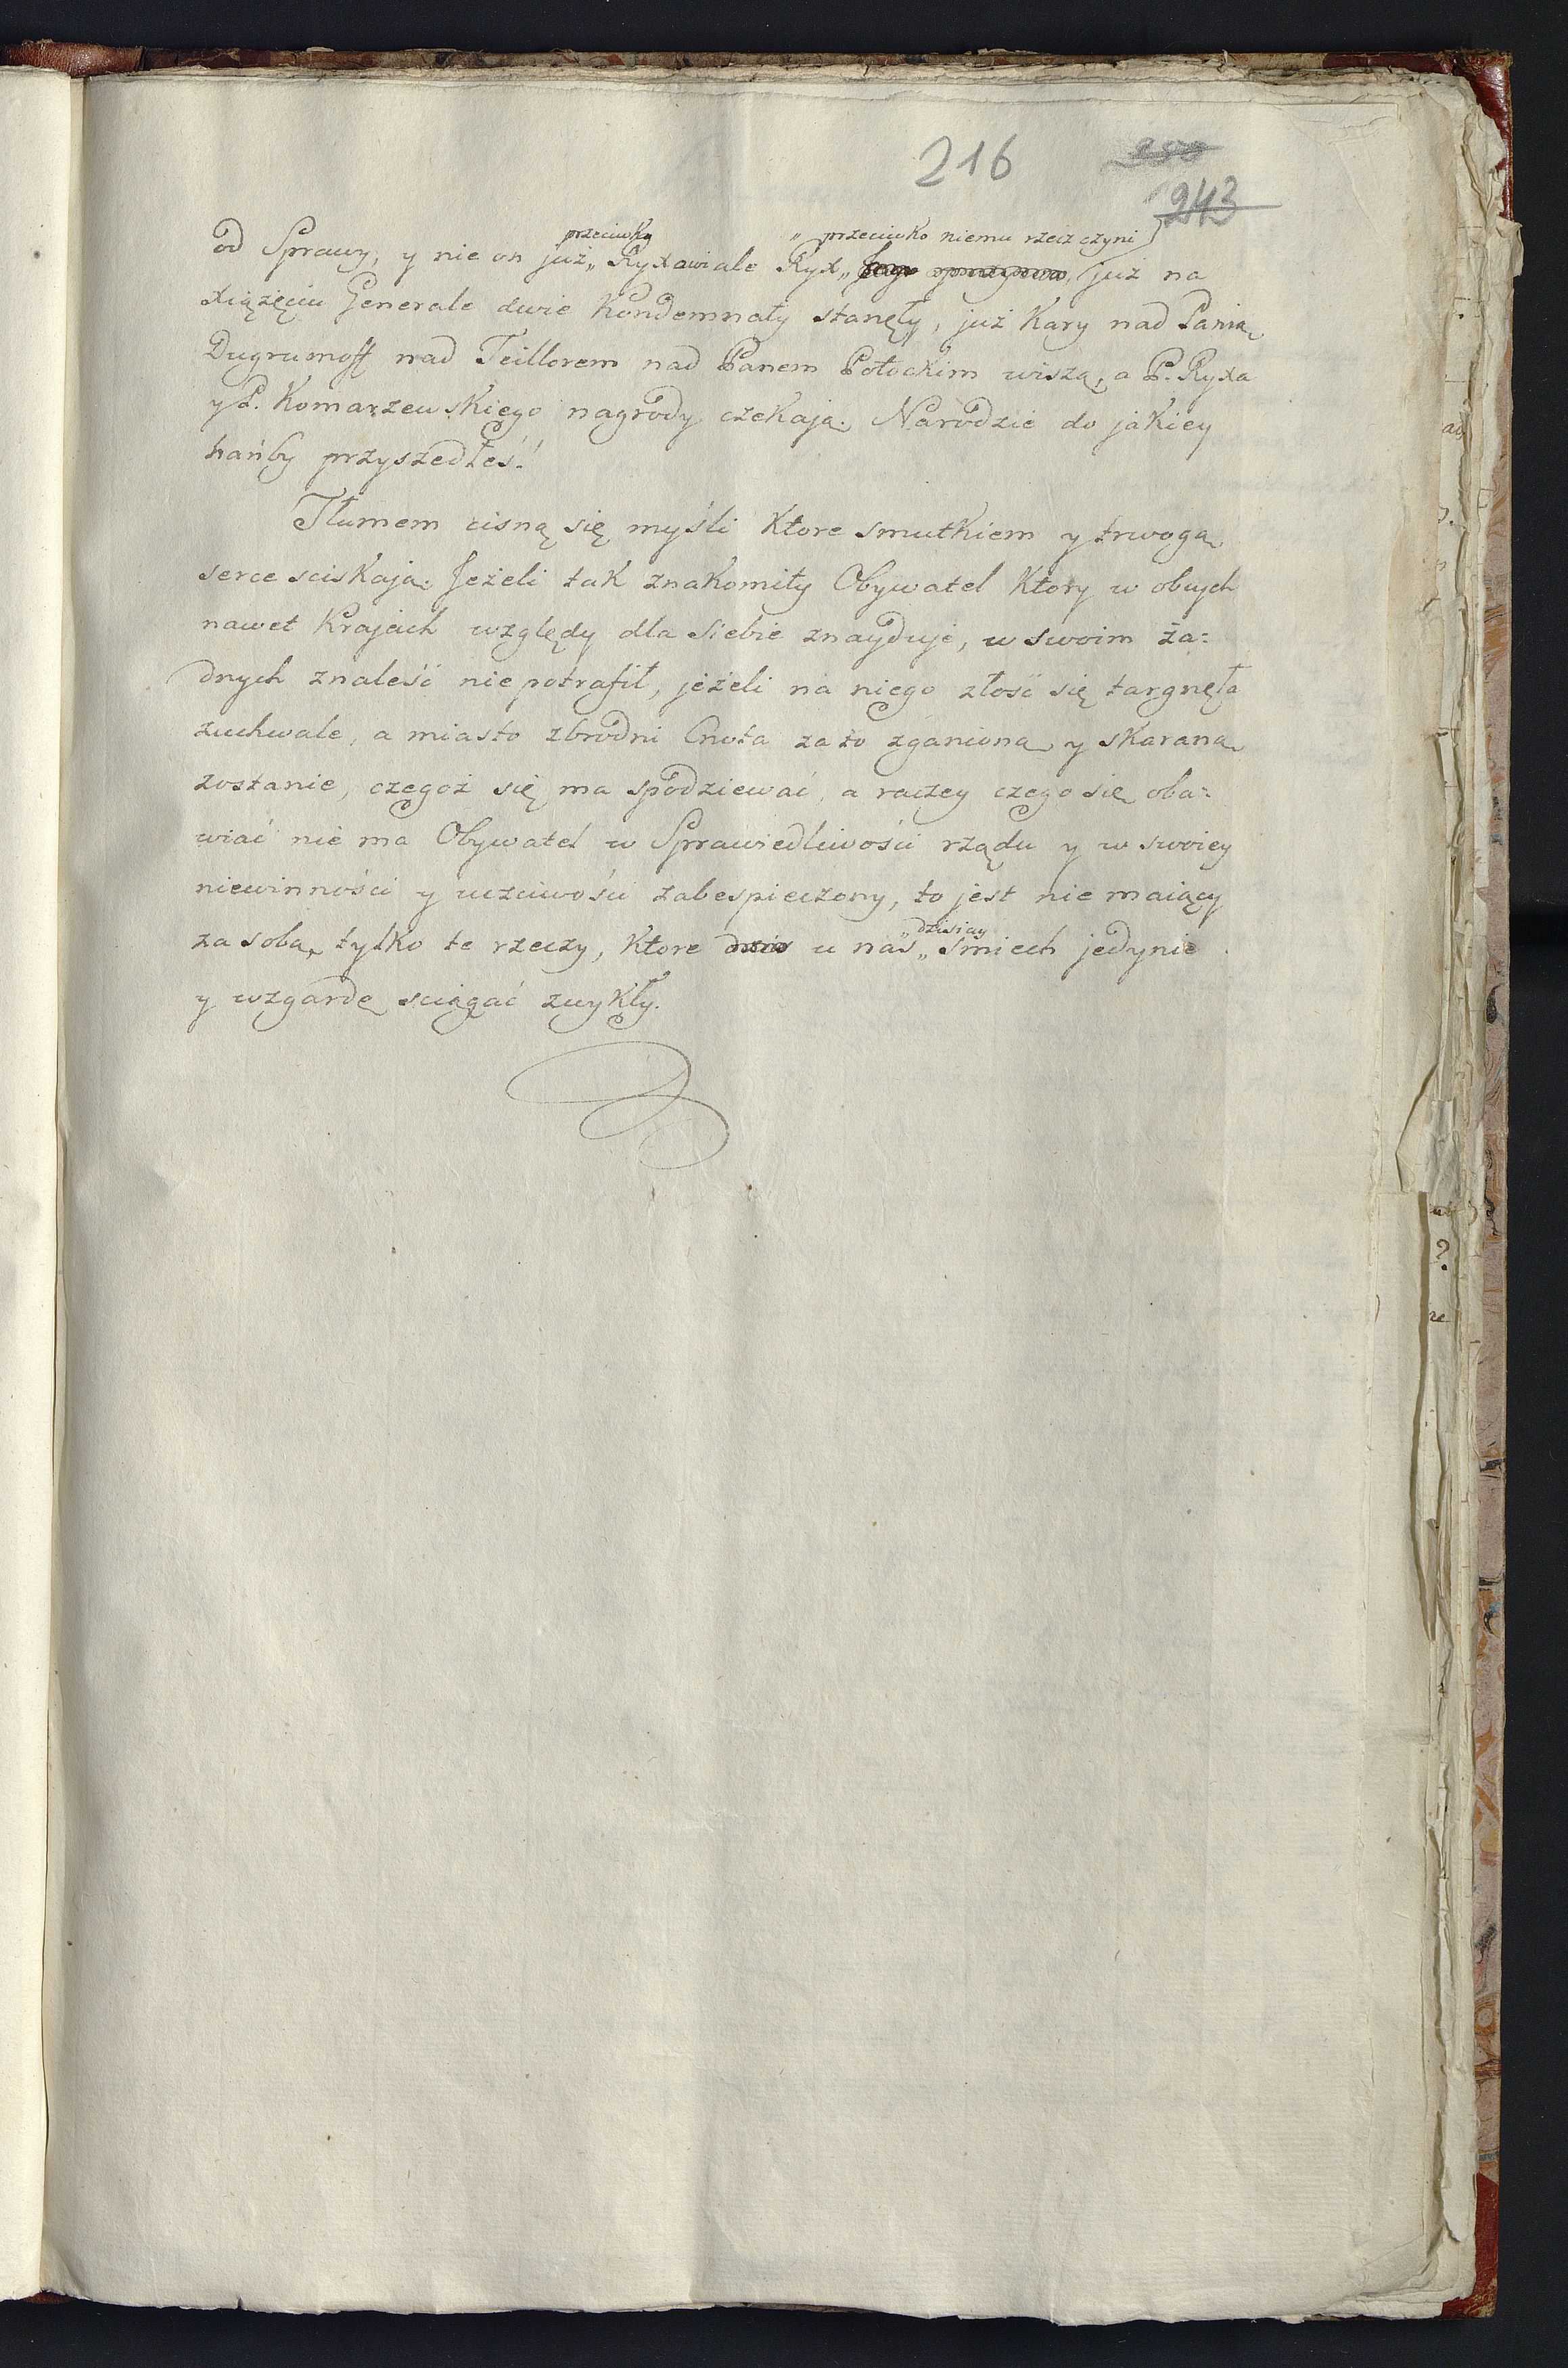 216
243
przeciwko " przeciwko niemu rzecz czyni
od Sprawy, y nie on już „ Ryxowi ale Ryx „ już na
Xiążęciu Generale dwie Kondemnaty stanęły, już Kary nad Panią
Dugrumoff nad Teillorem nad Panem Potockim wiszą, a P. Ryxa
y P. Komarzewskiego nagrody czekają. Narodzie do jakiey
hańby przyszedłeś!
Tłumem cisną się myśli Ktore smutkiem y trwogą
serce sciskają. Jeżeli tak znakomity Obywatel Ktory w obcych
nawet Krajach względy dla siebie znayduje, w swoim ża=
dnych znaleść nie potrafił, jeżeli na niego złość się targnęła
zuchwale, a miasto zbrodni Cnota za to zganioną y skaraną
zostanie, czegoż się ma spodziewać, a raczey czego się oba=
wiać nie ma Obywatel w Sprawiedliwości rządu y w swoiey
niewinności y uczciwości zabespieczony, to jest nie maiący
dzisiay
za sobą tylko te rzeczy, Ktore u nas „ smiech jedynie
y wzgardę sciągać zwykły.